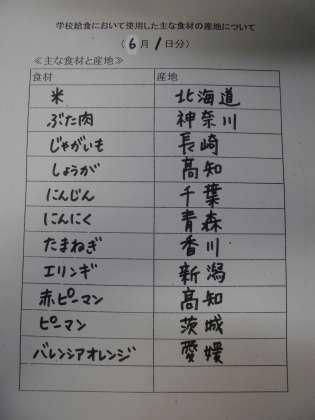 学校給食において使用した主な食材の産地について
(6月1日分)
≪主な食材と産地≫
食材 産地
米 北海道
ぶた肉 神奈川
じゃがいも 長崎
しょうが 高知
にんじん 千葉
にんにく 青森
たまねぎ 香川
エリンギ 新潟
赤ピーマン 高知
ピーマン 茨城
バレンシアオレンジ 愛媛